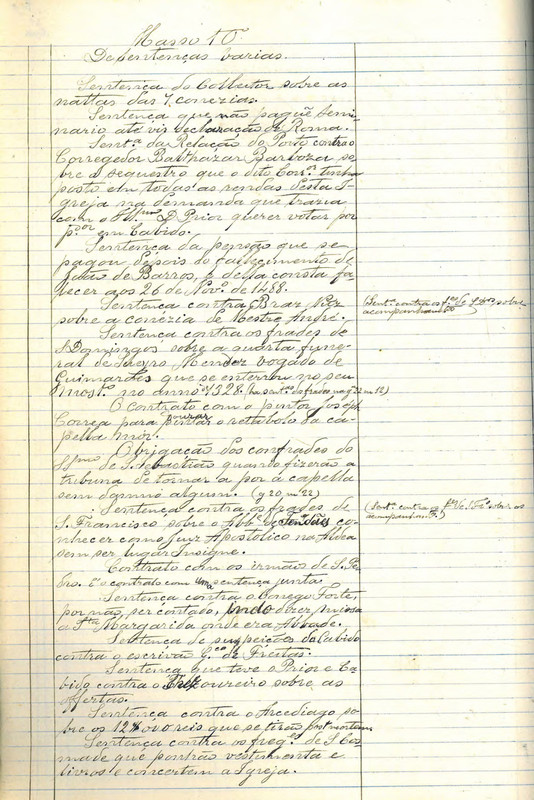 Masso 10
De sentenças varias.
Sentença do Colleitor sobre as
nattas das 7 conezias.
Sentença que não pague semi-
nario até vir declaração de Roma.
Sent.ª da Relação do Porto contra o
Corregedor Balthazar Barboza so-
bre o sequestro que o dito Corr.or tinha
posto em todas as rendas desta I-
greja na demanda que trazia
com o Ill.mo D. Prior querer votar por
p.dor em Cabido.
Sentença da pensão que se
pagou depois do fallecimento de
de Barros, e della consta fa-
lecer aos 26 de Nov.º de 1488.
Sentença contra Braz
sobre a conezia de Mestre André.
Sentença contra os frades de
S. Domingos sobre a quarta fune-
ral de Mendez vogado de
Guimarães que se enterrou no seu
most.º no anno 1328. (ha sent.ças do frades no g 22 m. 12)
O contrato com o pintor Joseph
Correia para dourar o retabolo da ca-
pella mor.
Obrigação dos confrades do
S. Sebastião quando fizerão a
tribuna de tornar a por a capella
sem damno algum. (g 20, m. 22)
Sentença contra os frades de
S. Francisco sobre o Abb.e de Tendães co-
nhecer como Juiz Apostolico na Aldea
sem ser lugar Insigne.
Contrato com os irmão de S. Pe-
dro. É o contrato com uma sentença junta
Sentença contra o Conego Forte,
por não ser contado, indo dizer missa
a S.ta Margarida onde era Abbade.
Sentença de suspeições do Cabido
contra o escrivão de Freitas.
Sentença que teve o Prior e Ca-
bido contra o Thezoureiro sobre as
offertas.
Sentença contra o Arcediago so-
bre os 12$000 reis que se tirão post mortem
Sentença contra os freg.es de S. Cos-
made que ponhão vestimenta e
livros e concertem a Igreja.
(Sent.ª contra os sobre
acompanham.tos)
(Sent.ª contra os sobre os
acompanham.tos)